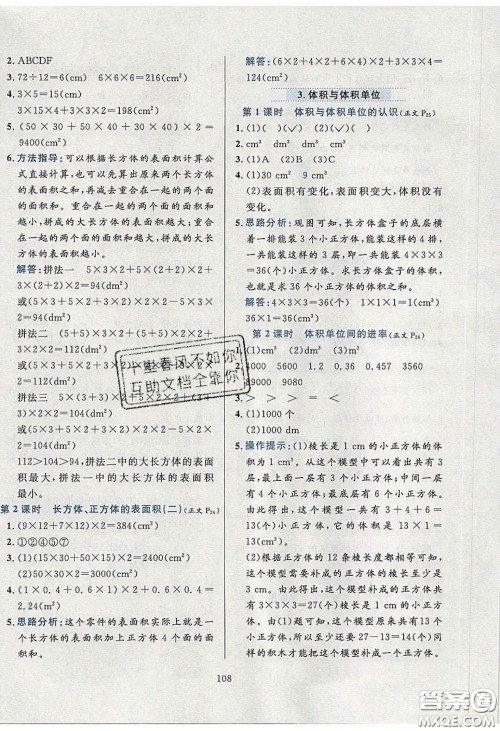 2. ABCDF
3. 72÷12=6(cm) 6×6×6=216(cm²)
4. 3×5=15(cm)
3×15×4+3×3×2=198(cm²)
5. (50×30+50×40+30×40)×2=
9400(cm²)
6. 方法指导:可以根据长方体的表面积计算公
式直接计算,也可以先算出原来两个长方体
的表面积和,再减去重合在一起的两个面
的面积和;重合在一起的两个面的面积和
越小,拼成的大长方体的表面积越大;重合
在一起的两个面的面积和越大,拼成的大长
方体的表面积越小。
解答:拼法一 5×3×2+5×(2×2)+
3×(2×2)×2=94(dm²)
或(5×3+5×2+3×2)×2×2-
5×3×2=94(dm²)
拼法二
拼法三
2=104(dm²)
112>104>94,拼法一中的大长方体的表面
积最小。
第2课时 长方体、正方体的表面积(二)(正文 P₂₄)
1. (9×12+7×12)×2=384(cm²)
2. ①④⑤⑦
3. (1)(15×20+25×20)×3=2400(cm²)
(2)25×15×6=2250(cm²)
4. (1×0.4+0.6×1)×2+0.6×0.4=
2.24(m²)
5. 思路分析:这个零件的表面积实际上就是一
个长方体的表面积加上正方体4个面的面
积和。
解答:(6×2+4×2+6×4)×2+3×3×4=
124(cm²)
3. 体积与体积单位
第1课时 体积与体积单位的认识(正文 P₂₅)
1. (1)( ) (√) ( ) (2)(√) ( ) ( )
2. cm³ dm³ m³ cm³ dm³
3. 6 9 7
4. (1)36 cm³ 36 cm³
(2)表面积有变化,表面积变大,体积没有
变化。
5. 思路分析:观图可知,长方体盒子的底层横
着一排能装3个小正方体,这样能装4排,
一共能装3层,所以一共能装4×3×3=
36(个)小正方体。求长方体盒子的体积,
也就是求36个小正方体的体积。
解答:4×3×3=36(个) 1×1×1=1(cm³)
36×1=36(cm³)
第2课时 体积单位间的进率(正文 P₂₆)
1. (1)cm³ (2)dm³ (3)m³ (4)dm³
3. > > = <
4. (1)1000个
(2)1000 dm
5. 操作提示:(1)棱长是1 cm的小正方体的体
积为1 cm³。从图中看出这个模型一共有3
层,最下层有9个小正方体,中间一层有3个
小正方体,最上层有1个小正方体,则共有
9+3+1=13(个)小正方体,因为每个小正方
体的体积都是1 cm³,所以这个模型的体积
是13个小正方体的体积之和,即13×1=
13(cm³)。
(2)根据正方体的12条棱长度相等可知,
这个模型需要补成的正方体的棱长至少是
3 cm。由此得出,这个模型补成的正方体
至少由3×3×3=27(个)棱长为1 cm的小
正方体组成,所以至少还需要27-13=14(个)同
样的积木才能把它补成一个大正方体。
108
平野春风不如你
互助文档全靠你
答案圈
MXQE.COM